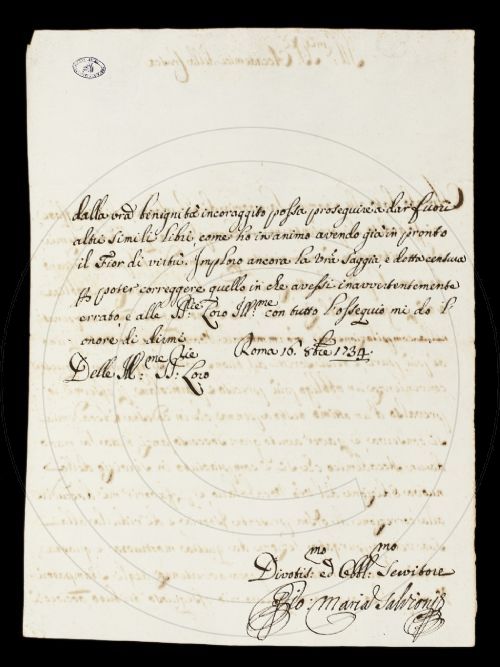 dalla vrã benignità incoraggito possa proseguire a dar fuori
altri simili libri, come ho in animo avendo già in pronto
il Fior di virtù. Imploro ancora la vrã saggia, e dotta censura
poter correggere quello in che avessi inavvertentemente
errato, e alle SS:rie Loro Ill:me con tutto l'ossequio mi do l'
onore di dirmi
Delle Ill:me SS:rie Loro
Roma 16. 8bre 1734.
Divotis:mo ed Obbl:mo Servitore
Gio: Maria Salvioni